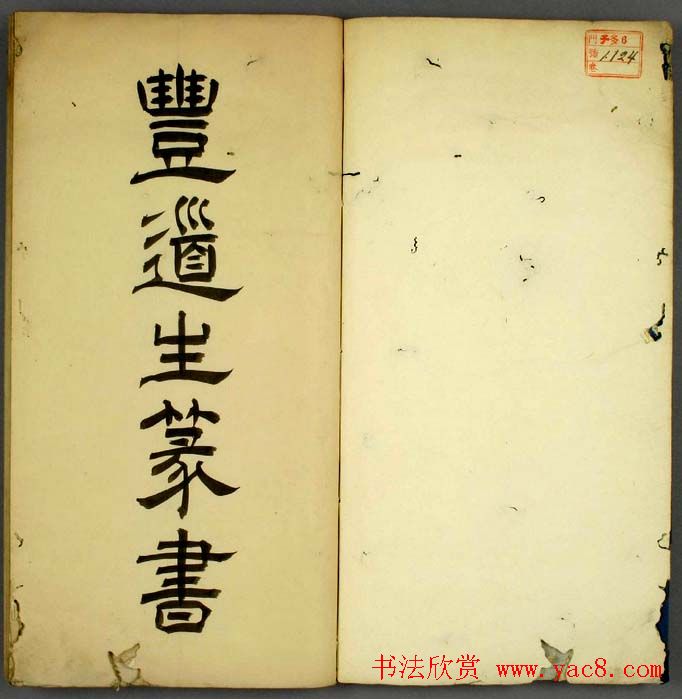 豐道生篆書
門 子多6
號
卷 1124
书法欣赏 www.yac8.com